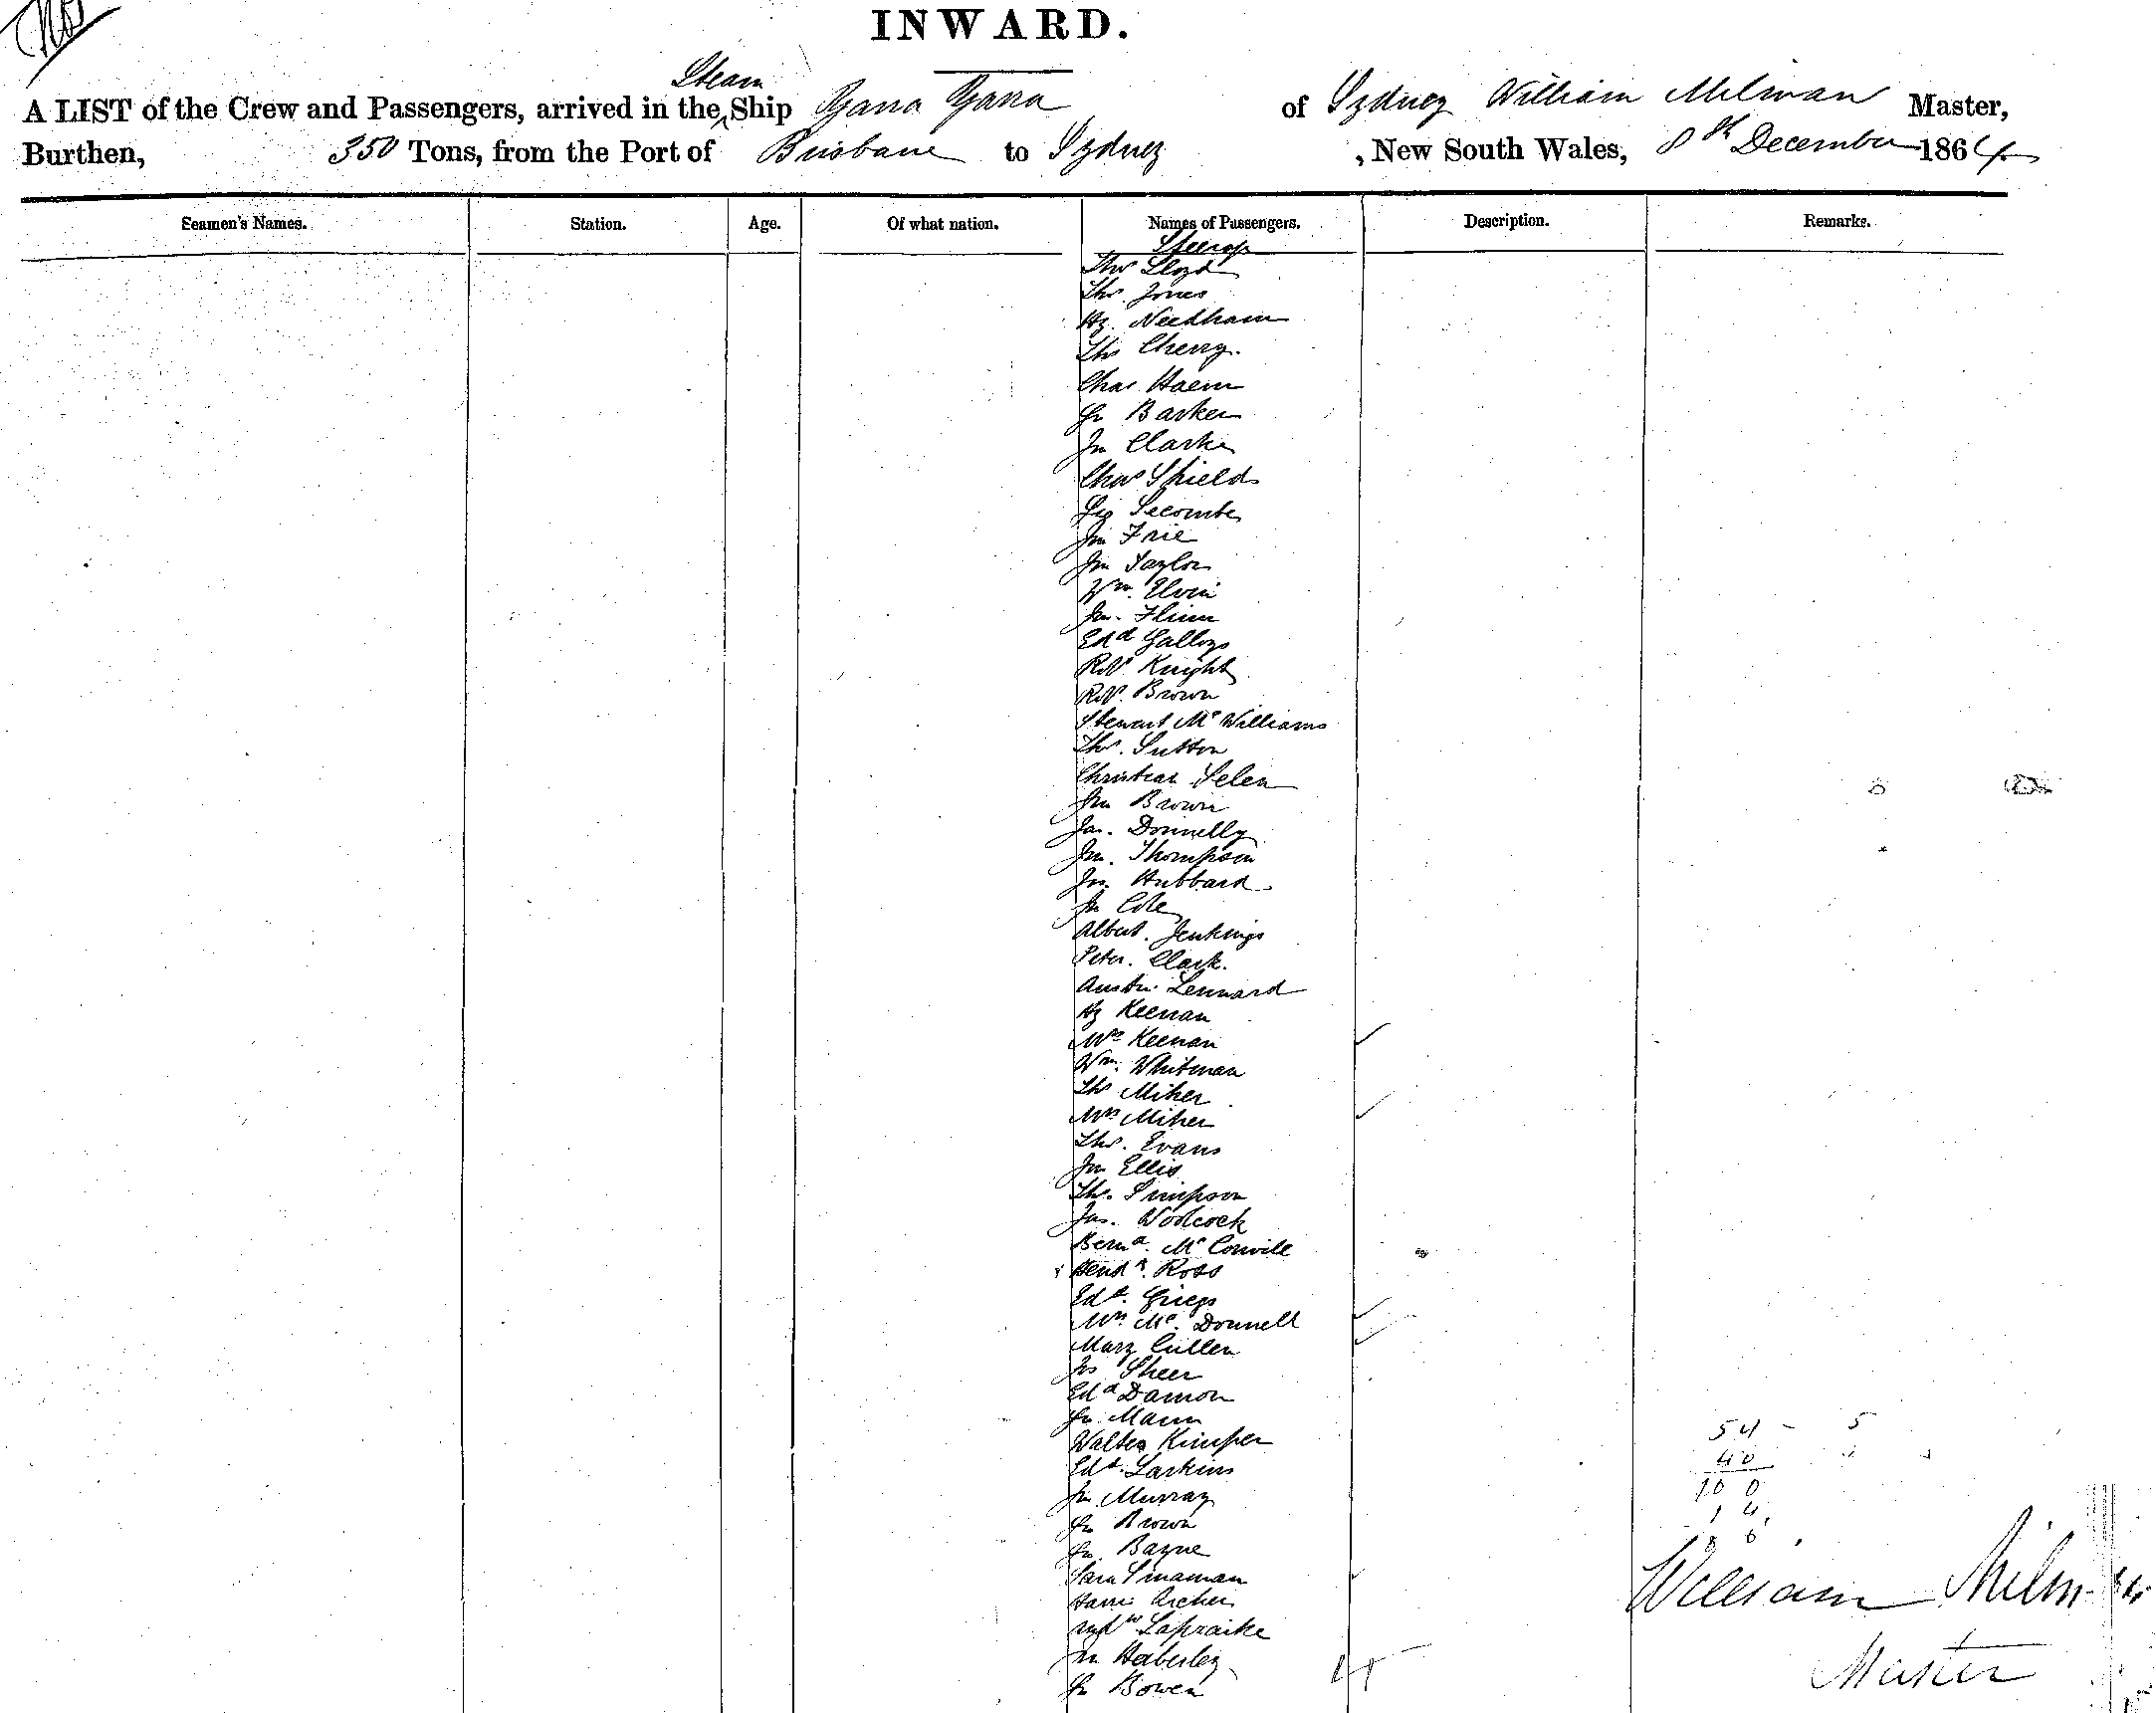 INWARD.
Steam
A LIST of the Crew and Passengers, arrived in the Ship Yarra Yarra of Sydney William Milman Master,
Burthen, 350 Tons, from the Port of Brisbane to Sydney , New South Wales, 8th December 1864
Seamen's Names. Station. Age. Of what nation. Names of Passengers. Description. Remarks.
Steerage
Thos Lloyd
Thos. Jones
Hy. Needham
Thos Cherry.
Chas Haem
Jn Barker
Jn Clarke
Chas Shields
Secombe
Jn Frie
Jn Taylor
Wm. Elvin
Jn. Flinn
Edd Galloys
Robt Knight
Robt. Brown
Stewart McWilliams
Thos. Sutton
Christian Selen
Jn Brown
Jas. Donnelly
Jn. Thompson
Jn. Hubbard
Jn Cole
Albert. Jenkings
Peter. Clark.
Austin. Lennard
Hy Keenan
Mrs Keenan
Wm. Whitman
Thos Miher
Mrs Miher
Thos. Evans
Jn Ellis
Thos. Simpson
Jas. Woolcock
Bernd. McConvill
Hendk. Ross
Edd. Griegs
Mrs Mc. Donnell
Mary Cullen
Jos Sheer
Edd Damon
Jn. Mann
Walter Kimper
Edd. Larkins
Jn Murray
Jn Brown
Jn. Bayne
Sara Sinaman
Archer
Lapraike
Jn Haberley
Jn Bowen
54 - 5
40
William Milman
Master